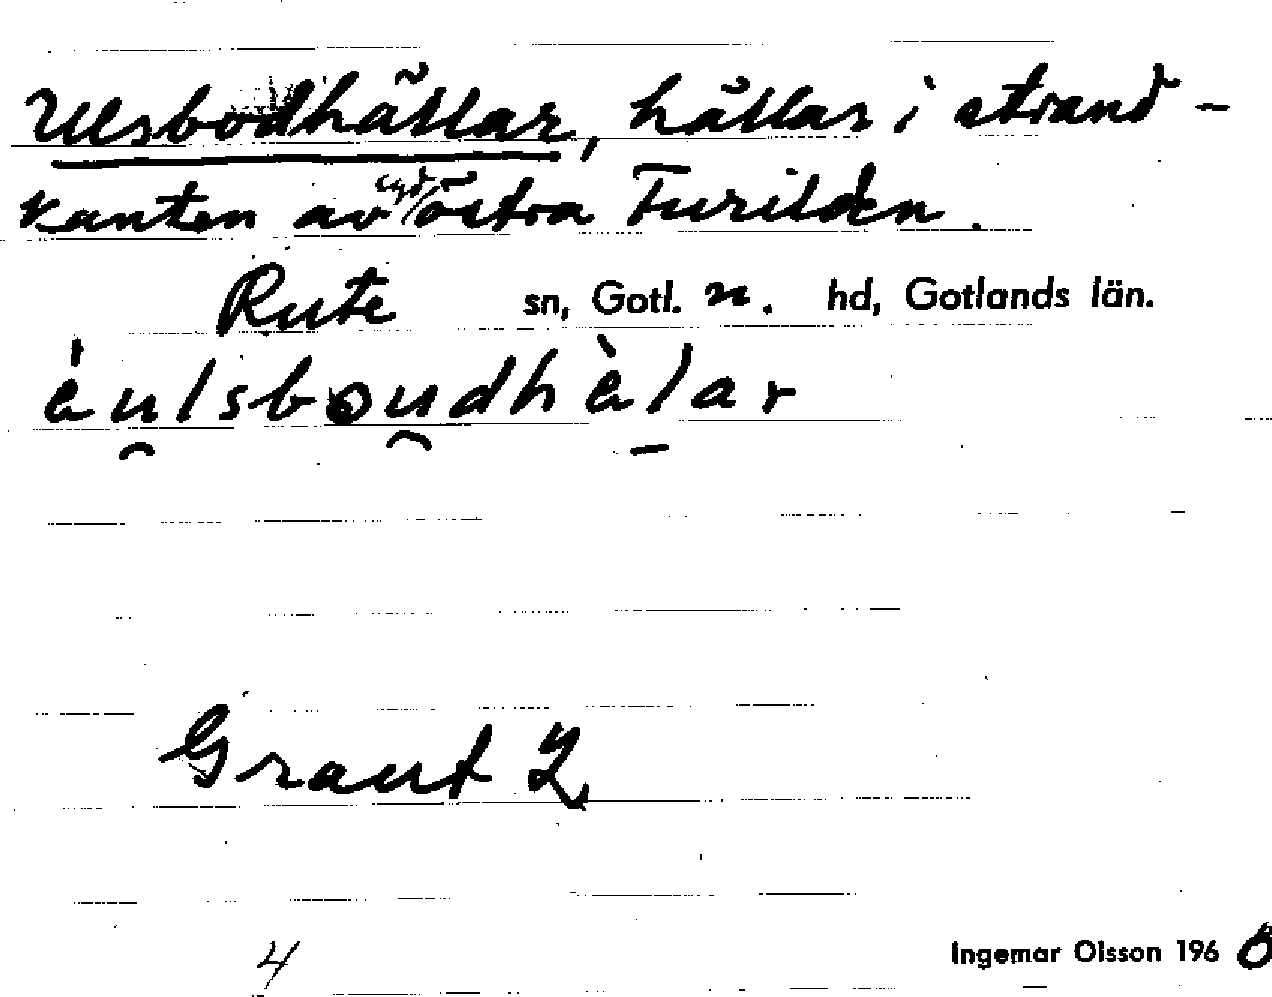 Ulsbodhällar, hällar i strand-
kanten av syd/östra Furilden.
Rute sn, Gotl. n. hd, Gotlands län.
áulsboudhàlar
Graut 2
4
Ingemar Olsson 196